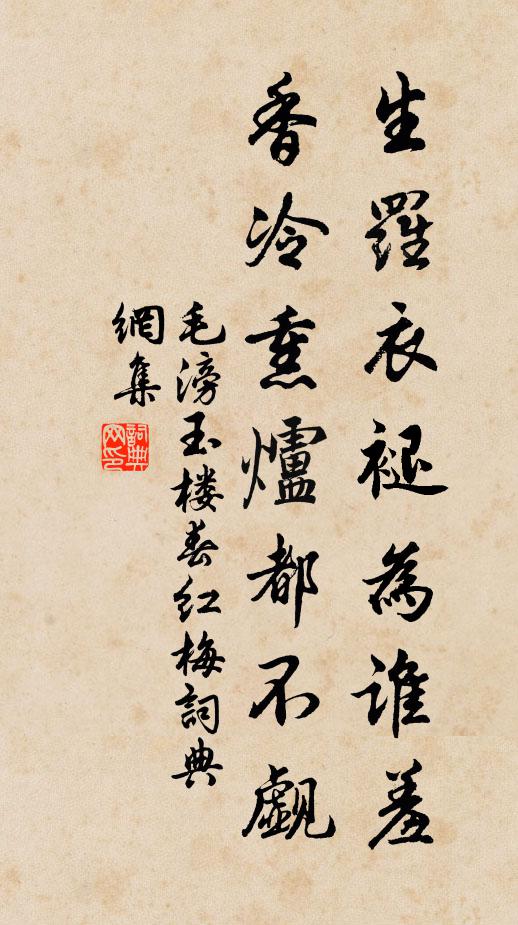 生羅衣褪為誰羞
香冷熏爐都不覷
毛滂玉楼春红梅詞典
網集
詞典
网